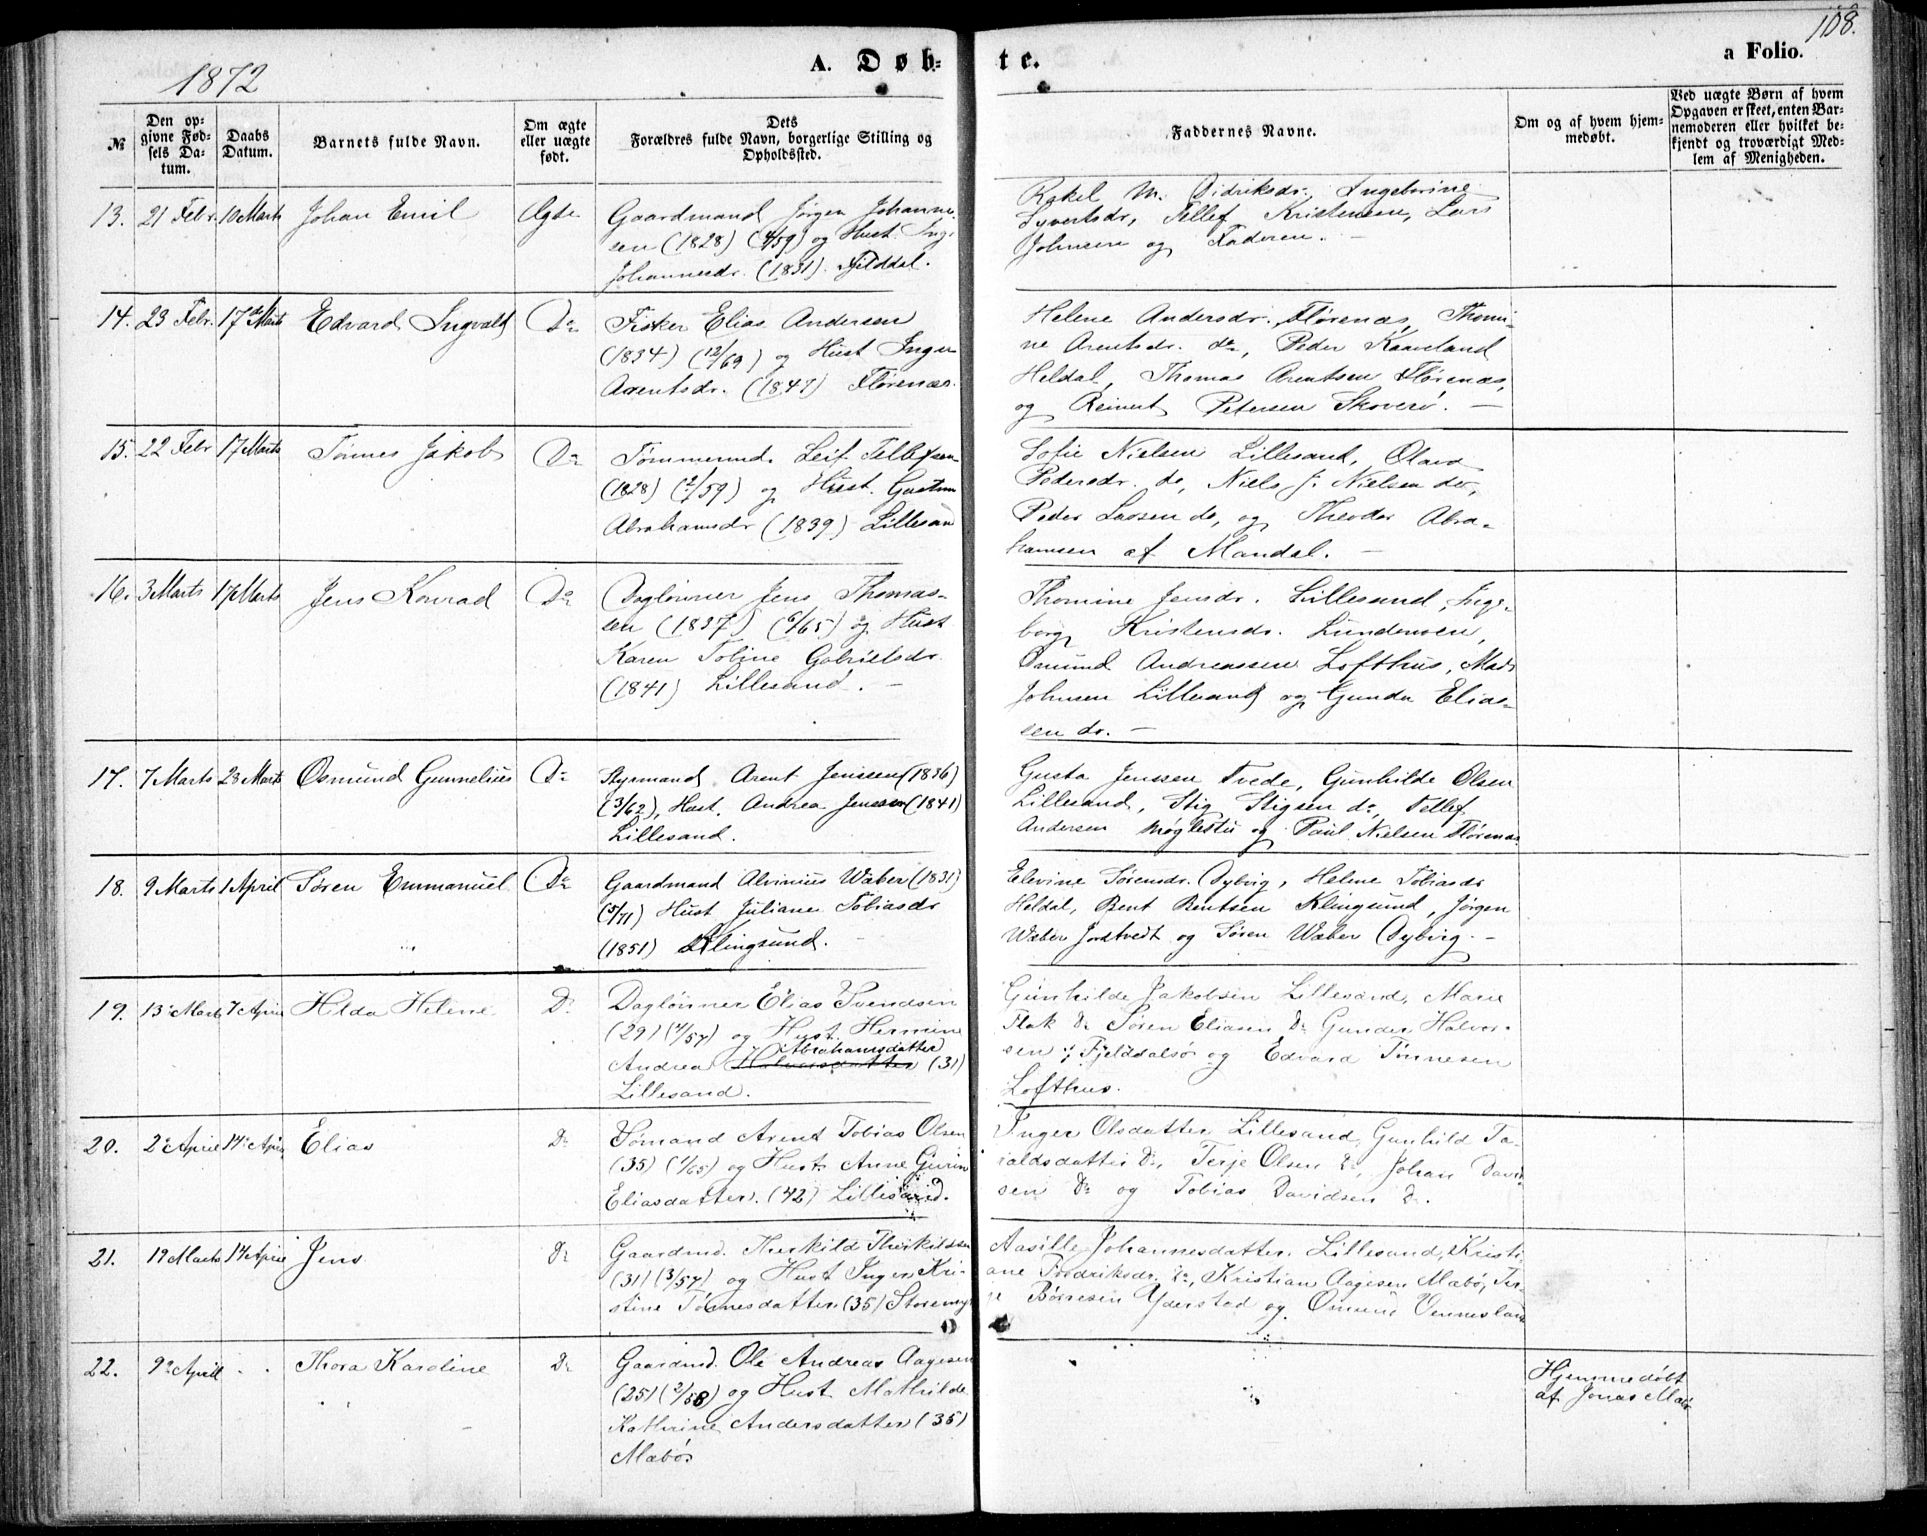 1872
108.
A. Døb-
te.
a Folio.
№
Den op-
givne Fød-
sels Da-
tum.
Daabs
Datum.
Barnets fulde Navn.
Om ægte
eller uægte
født.
Dets
Forældres fulde Navn, borgerlige Stilling og
Opholdssted.
Faddernes Navne.
Om og af hvem hjem-
medøbt.
Ved uægte Børn af hvem
Opgaven er skeet, enten Bar-
nemoderen eller hvilket be-
kjendt og troværdigt Med-
lem af Menigheden.
13. 21 Febr. 10 Marts Johan Emil Ægte
Gaardmand Jørgen Johanne-
sen (1828) (4/59) og Hust. Ing.
Johannesdr. (1831)
Rakel M. Didriksdr. Ingeborine
Syvertsdr, Tellef Kristensen, Lars
Johnsen og Faderen. —
14. 23 Febr. 17de Marts Edvard Ingvald Do
Fisker Elias Andersen
(1834) (12/69) og Hust Inger
Arentsdr. (1847) Florenæs.
Helene Andersdr. Florenæs, Thomi-
ne Arentsdr. do, Peder Kaaveland
Heldal, Thomas Arentsen Florenæs,
og Reinert Petersen Skoverø. —
15. 22 Febr 17 Marts Tønnes Jakob Do
Tømmermd. Leif Tellefsen
(1828) (2/59) og Hust.
Abrahamsdr (1839) Lillesand
Sofie Nielsen Lillesand, Olava
Pedersdr. do, Niels J. Nielsen do,
Peder Larsen do, og Theodor Abra-
hamsen af Mandal. —
16. 3 Marts 17 Marts Jens Konrad Do
Daglønner Jens Thomas-
sen (1837) (6/65) og Hust
Karen Toline Gabrielsdr.
(1841) Lillesand. —
Thomine Jensdr. Lillesand, Inge-
borg Kristensdr.
Osmund Andreassen Lofthus, Mads
Johnsen Lillesand og Gunder Elias-
sen do. —
17. 7 Marts 23 Marts Osmund Gunnelius Do
Styrmand Arent Jenssen (1836)
(3/62), Hust. Andrea Jenssen (1841)
Lillesand.
Gusta Jenssen Tvede, Gunhilde Olsen
Lillesand, Stig Stigsen do, Tellef
Andersen Møglestu og Paul Nielsen Florenæs
18. 9 Marts 1 April Søren Emmanuel Do
Gaardmand Alvinius Wæber (1831)
(5/71) Hust Juliane Tobiasdr
(1851) Klingsund. —
Elevine Sørensdr. Dybvig, Helene Tobiasdr
Heldal, Bent Bentsen Klingsund, Jørgen
Wæber Jordtvedt og Søren Wæber Dybvig. —
19. 13 Marts 7 April Hilda Helene Do
Daglønner Elias Svendsen
(29) (4/57) og Hust. Hermine
Abrahamsdatter
Andrea Halvorsdatter (31)
Lillesand.
Gunhilde Jakobsen Lillesand, Marie
Flak Do Søren Eliasen Do Gunder Halvor-
sen Fjelddalsør og Edvard Tønnesen
Lofthus.
20. 2 April 14 April Elias Do
Sømand Arent Tobias Olsen
(35) (1/65) og Hust. Anne Gurine
Eliasdatter. (42) Lillesand.
Inger Olsdatter Lillesand, Gunhild Ta-
raldsdatter Do, Terje Olsen Do, Johan David-
sen Do og Tobias Davidsen Do.
21. 19 Marts 14 April Jens Do
Gaardmd. Therkild Therkildsen
(31) (3/57) og Hust Inger Kri-
stine Tønnesdatter (35)
Aasille Johannesdatter Lillesand, Kristi-
ane Fredriksdr. Do, Kristian Aagesen Mæbø, Ter-
je Børresen Yderstad og Omund Vennesland
22. 9 April Thora Karoline Do
Gaardmd. Ole Andreas Aagesen
(25) (2/58) og Hust Mathilde
Kathrine Andersdatter (35)
Mæbø
Hjemmedøbt
af Jonas Mæbø